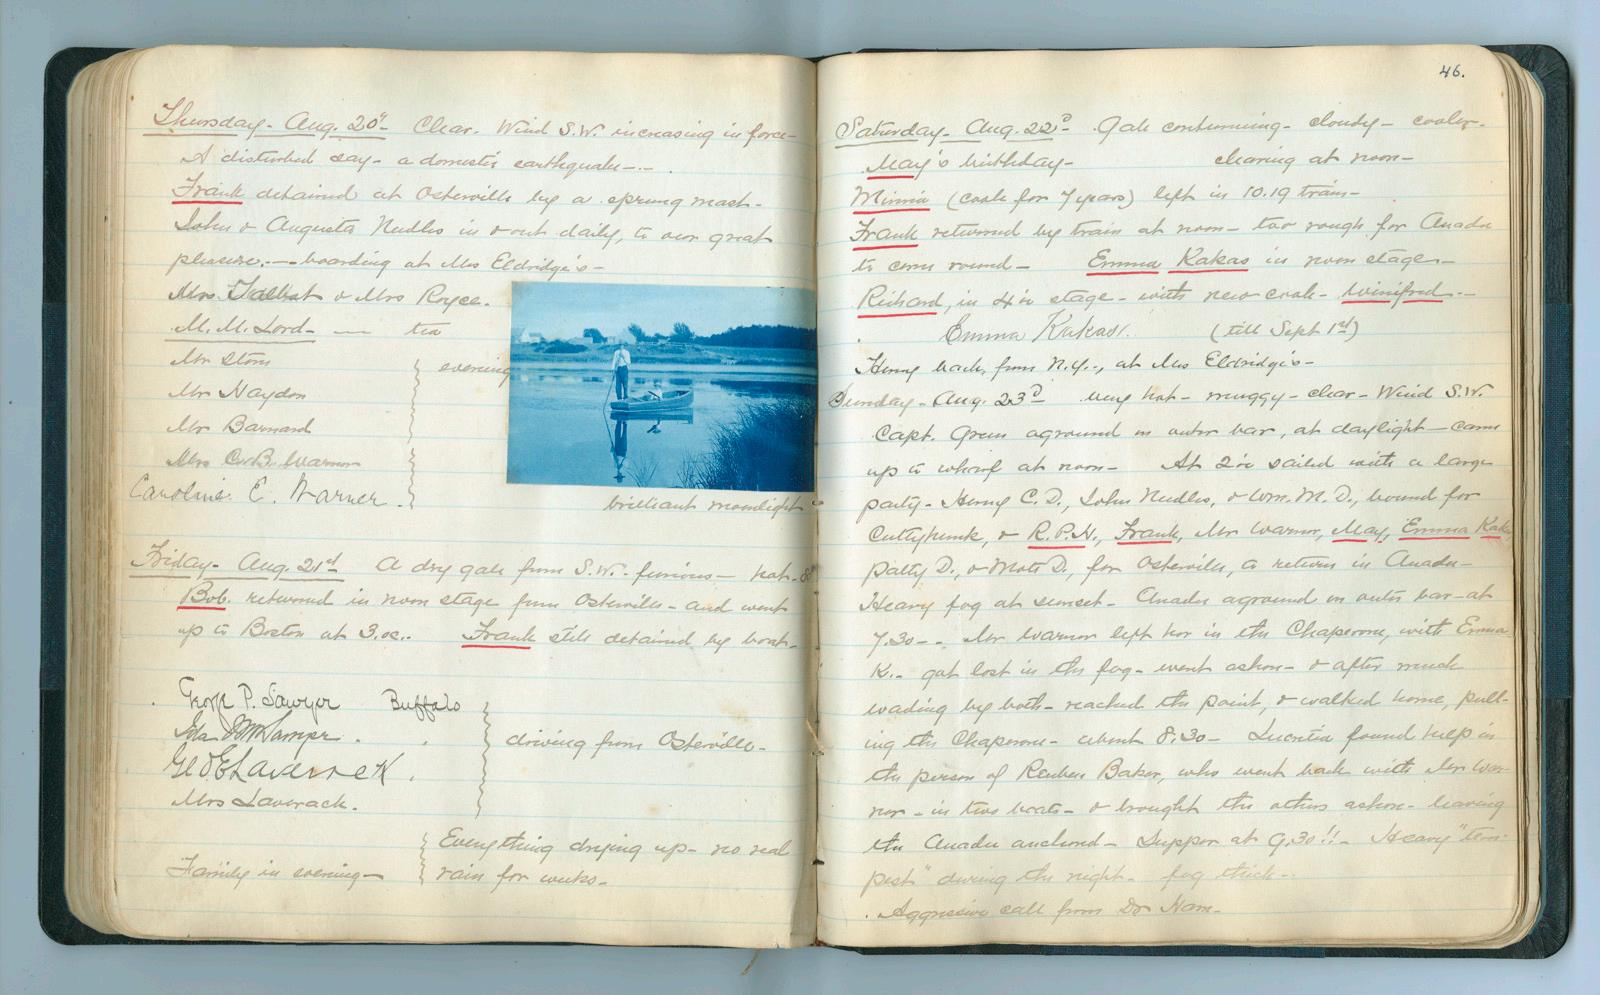 Thursday - Aug. 20th - Clear. Wind S.W. increasing in force -
A disturbed day - a domestic earthquake - .
Frank detained at Osterville by a sprung mast -
John & Augusta Nudles in & out daily, to our great
pleasure. - boarding at Mrs Eldridge's -
Mrs. Talbot & Mrs Royce.
M. M. Lord - — tea
Mr Storn
evening
Mr Haydon
Mr Barnard
Mrs C. B. Warner
Caroline E. Warner.
brilliant moonlight
Friday - Aug. 21st A dry gale from S.W. - furious - hot -
Bob. returned in noon stage from Osterville - and went
up to Boston at 3.oc. Frank still detained by boat -
Geo. P. Sawyer Buffalo
Ida
driving from Osterville -
Geo E Laverack.
Mrs Laverack.
Everything drying up - no real
Family in evening - rain for weeks -
46.
Saturday - Aug. 22d Gale continuing - cloudy - cooler -
May's birthday - clearing at noon -
Minnie (cook for 7 years) left in 10.19 train -
Frank returned by train at noon - too rough for Anadu
to come round - Emma Kakas in noon stage -
Richard, in 4 oc stage - with new cook - Winifred -
Emma Kakas. (till Sept 1st)
Henry back, from N.Y., at Mrs Eldridge's -
Sunday - Aug. 23d very hot - muggy - clear - Wind S.W.
Capt. Green aground on outer bar, at daylight - came
up to wharf at noon - At 2 oc sailed with a large
party - Henry C. D., John Nudles, & Wm. M. D., bound for
Cuttyhunk, & R.P.N., Frank, Mr Warner, May, Emma Kak.
Patty D., & Mots D., for Osterville, to return in Anadu -
Heavy fog at sunset - Anadu aground on outer bar - at
7.30 - - Mr Warner left her in the Chaperone, with Emma
K. - got lost in the fog - went ashore - & after much
wading by both - reached the point, & walked home, pull-
ing the Chaperone - about 8.30 - Lucretia found help in
the person of Reuben Baker, who went back with Mr War-
ner - in two boats - & brought the others ashore - leaving
the Anadu anchored - Supper at 9.30!! - Heavy "tem-
pest" during the night - fog thick - .
Aggressive call from Dr Ham -